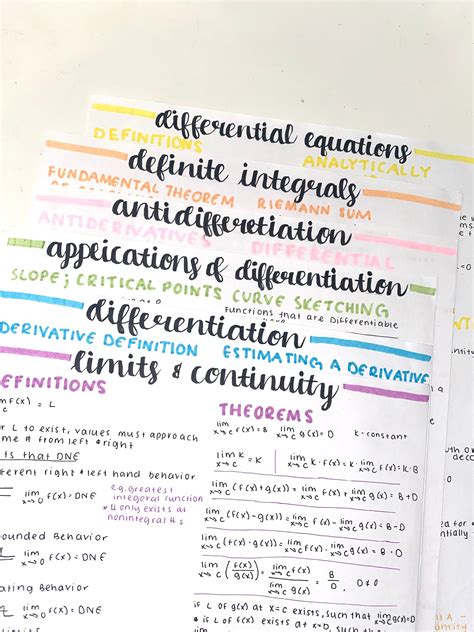 differential equations
DEFINITIONS ANALYTICALLY
definite integrals
FUNDAMENTAL THEOREM RIEMANN SUM
antidifferetiation
ANTIDERIVATIVES DIFFERENTIAL
applications of differentiation
SLOPE; CRITICAL POINTS CURVE SKETCHING
Functions that are Differentiable
differentiation
DERIVATIVE DEFINITION ESTIMATING A DERIVATIVE
limits & continuity
EFINITIONS
m f(x) = L
c
L to exist, values must approach
me # from left & right
ts that DNE
ferent right & left hand behavior
lim x→0 f(x) = DNE
e.g. greatest
integeral function
* & only exists at
nonintegral #s
ounded Behavior
lim x→0 f(x) = DNE
ating Behavior
lim x→0 f(x) = DNE
THEOREMS
lim x→c f(x) = B lim x→c g(x) = D k - constant
lim x→c k = k lim x→c k · f(x) = k · lim x→c f(x) = k · B
lim x→c (f(x) + g(x)) = lim x→c f(x) + lim x→c g(x) = B + D
lim x→c (f(x) - g(x)) = lim x→c f(x) - lim x→c g(x) = B - D
lim x→c (f(x) · g(x)) = lim x→c f(x) · lim x→c g(x) = B · D
lim x→c (f(x)/g(x)) = lim x→c f(x) / lim x→c g(x) = B/D, D≠0
if L of g(x) at x = c exists, such that lim x→c g(x) = D
& if L of f(x) exists at x = D, such th